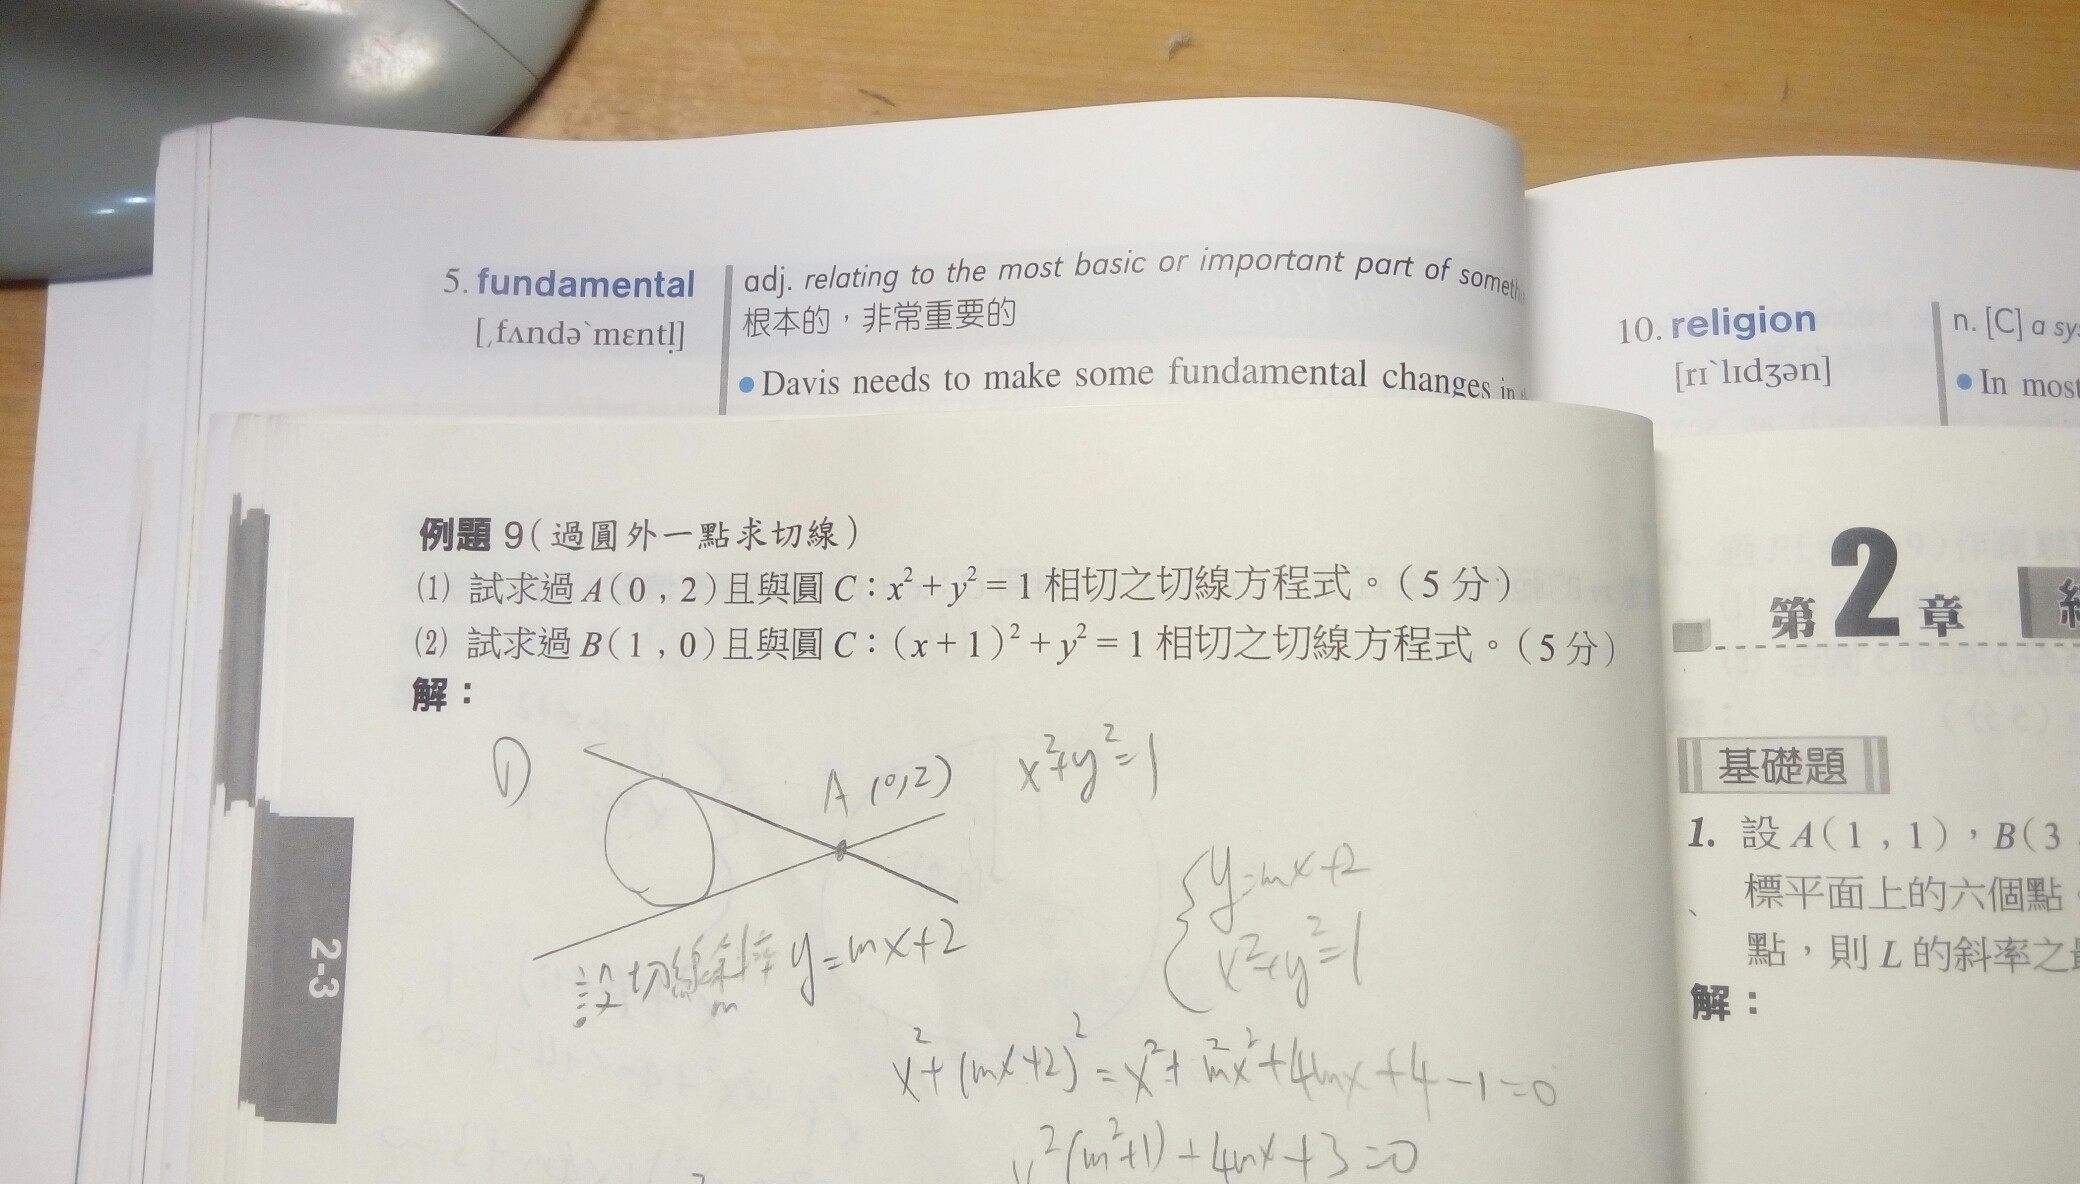 5. fundamental
[ˌfʌndəˋmɛntl̩]
adj. relating to the most basic or important part of someth
根本的，非常重要的
● Davis needs to make some fundamental changes in
10. religion
[rɪˋlɪdʒən]
n. [C] a sy
● In most
例題 9（過圓外一點求切線）
⑴ 試求過 A(0 , 2)且與圓 C：x² + y² = 1 相切之切線方程式。（5 分）
⑵ 試求過 B(1 , 0)且與圓 C：(x + 1)² + y² = 1 相切之切線方程式。（5 分）
解：
①
A (0,2)
x²+y²=1
設切線斜率 y=mx+2
m
y=mx+2
x²+y²=1
x²+(mx+2)²=x²+m²x²+4mx+4-1=0
x²(m²+1)+4mx+3=0
2-3
第2章
基礎題
1. 設 A(1 , 1)，B(3
標平面上的六個點
點，則 L 的斜率之
解：